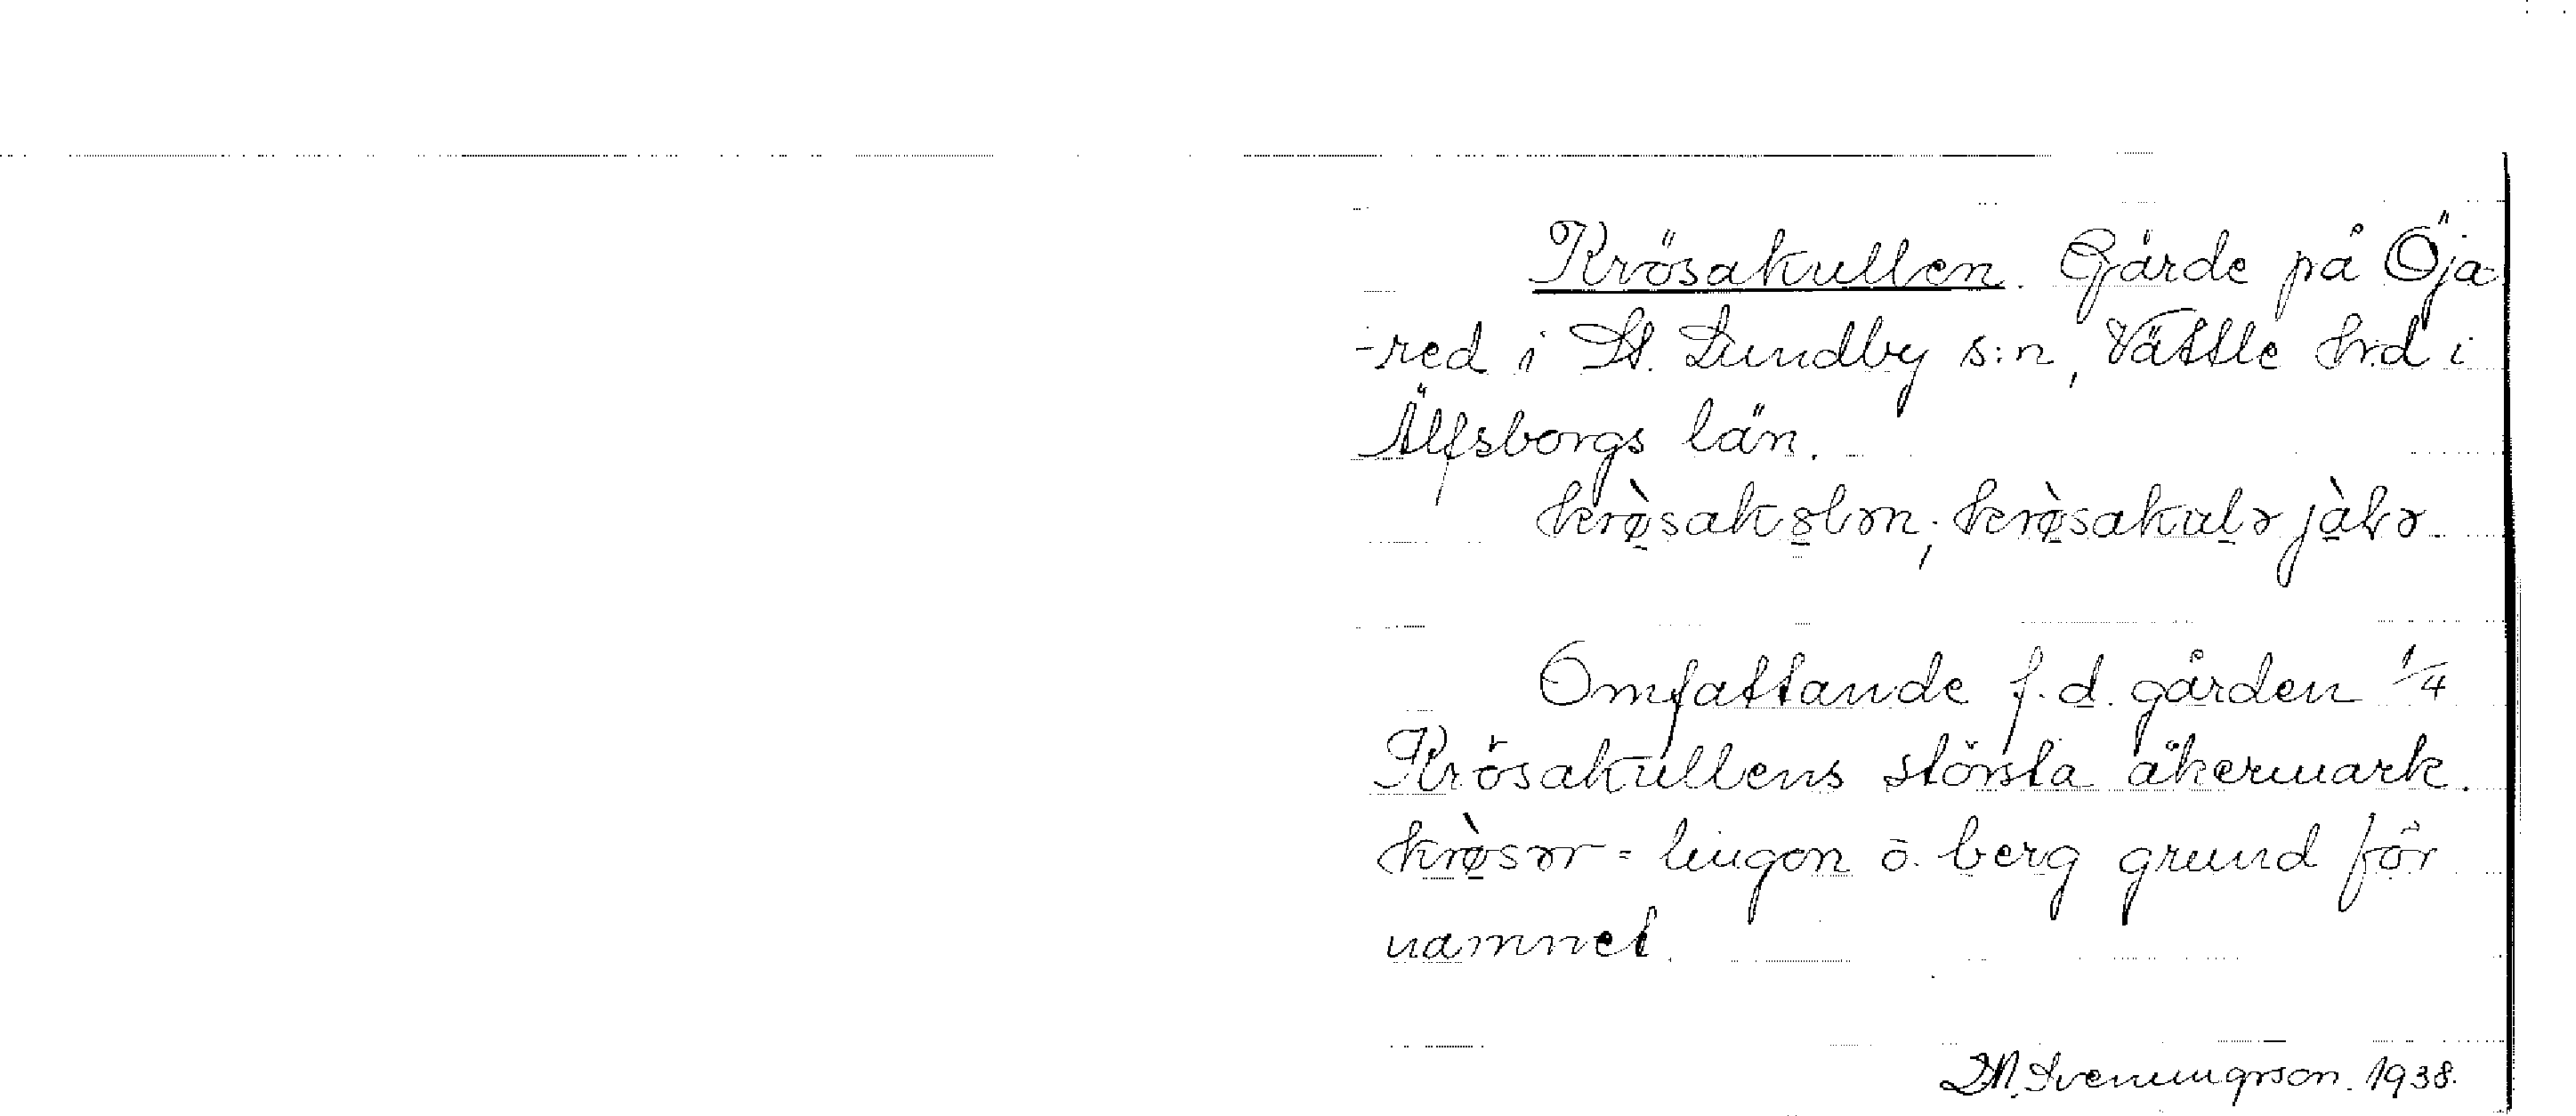 Krösakullen. Gärde på Öja-
-red i St. Lundby s:n, Vättle hrd i
Älfsborgs län.
krø̀sakȣlən; krø̀sakulə jàlə
Omfattande f.d. gården 1/4
Krösakullens största åkermark.
krø̀sər = lingon o. berg grund för
namnet.
Svenungsson. 1938.